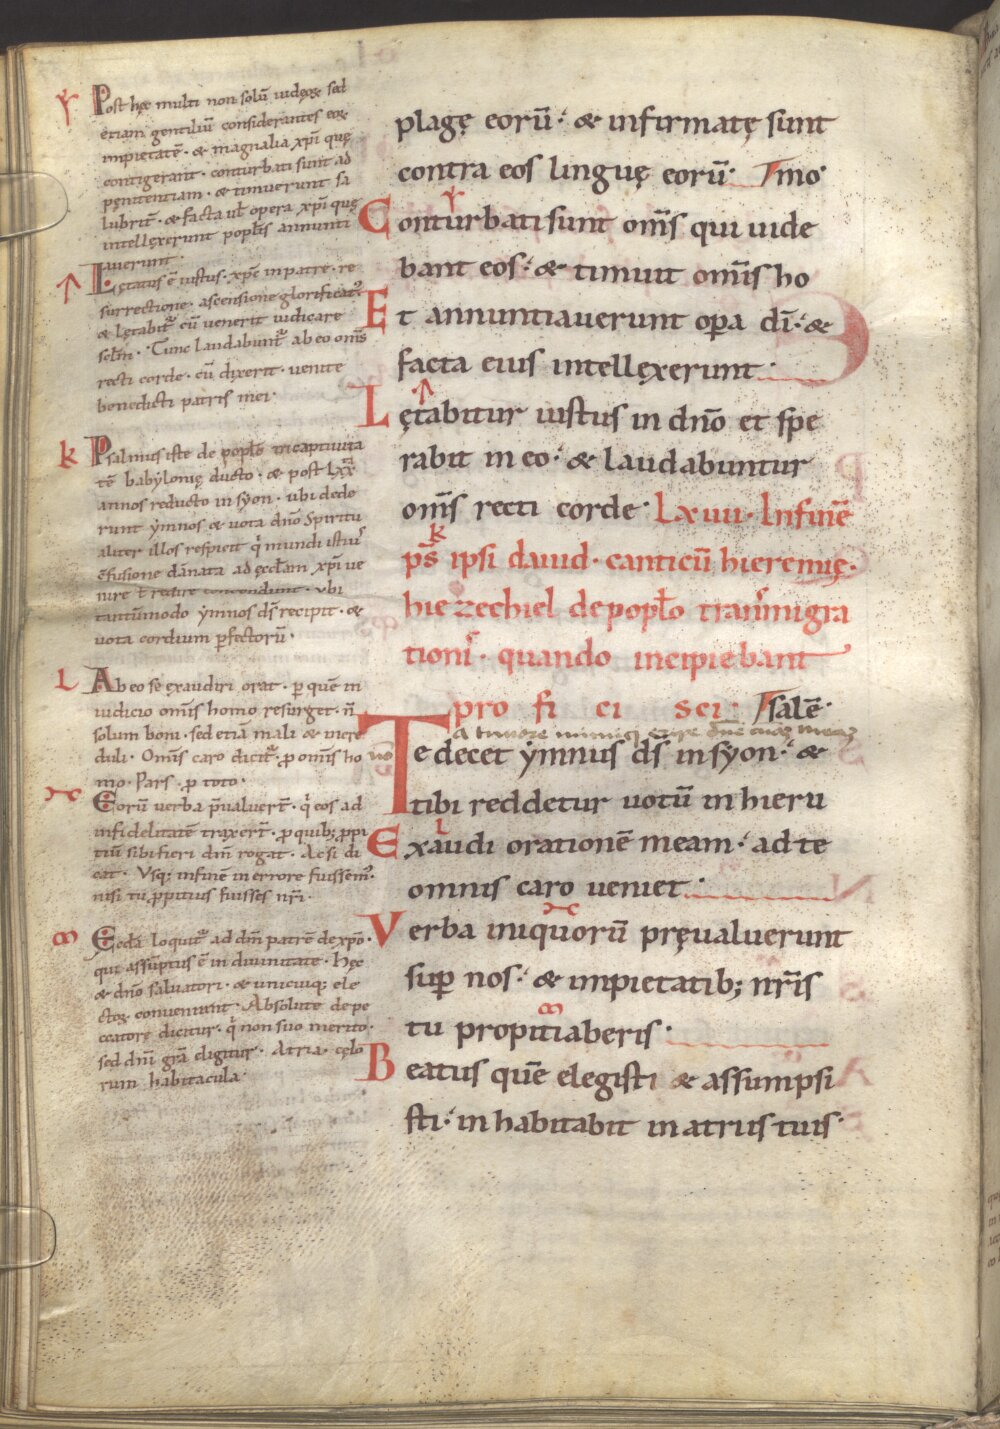 Post hęc multi non solū iudęoꝝ sed
etiam gentiliū considerantes eoꝝ
impietatē · & magnalia xp̄i quę
contigerant · conturbati sunt ad
pęnitentiam · & timuerunt sa
lubrit̄ · & facta ul̄ opera xp̄i quę
intellexerunt poplis annunti
auerunt ·
Lętatus ē iustus · xp̄c in patre · re
surrectione · ascensione glorificat᷒
& lętabit᷒ cū uenerit iudicare
sclm̄ · Tunc laudabunt᷒ ab eo om̄s
recti corde · cū dixerit · uenite
benedicti patris mei ·
k Psalmus iste de poplo in captiuita
tē babylonię ducto · & post lxx
annos reducto in syon · ubi dede
runt ẏmnos & uota dn̄o Spiritu
aliter illos respicit q̄ mundi istius
cfusione dānata ad ęccl̄am xp̄i ue
nire ł redire contendunt · Vbi
tantūmodo ẏmnos ds̄ recipit · &
uota cordium pfectorū ·
L Ab eo se exaudiri orat · p quē in
iudicio om̄is homo resurget · n̄
solum boni · sed etiā mali & incre
duli · Om̄is caro dicit᷒ · p om̄is ho
mo · Pars · p toto ·
Eorū verba p̄ualuert̄ · q̄ eos ad
infidelitatē traxert̄ · p quib; ppi
tiū sibi fieri dn̄m rogat · Ac si di
cat · Vsq; in finē in errore fuissem᷒ ·
nisi tu ppitius fuisses nr̄i ·
m Ecc̄la loquit᷒ ad dn̄m patrē de xp̄o ·
qui assūptus ē in diuinitate · Hęc
& dn̄o saluatori · & unicuiq; ele
ctoꝝ conueniunt · Absolute de pe
ccatore dicitur · q̄ non suo merito ·
sed dn̄i gr̄a eligitur · Atria · cęlo
rum habitacula ·
plagę eorū · & infirmatę sunt
contra eos linguę eorū · mo ·
Conturbati sunt om̄s qui uide
bant eos · & timuit om̄is ho
Et annuntiauerunt opa dī · &
facta eius intellexerunt ·
Lętabitur iustus in dn̄o et spe
rabit in eo · & laudabuntur
om̄s recti corde · Lxiiii · In finē
k
ps̄ ipsi dauid · canticū hieremię ·
hiezechiel de poplo transmigra
tionis · quando incipiebant
pro fi ci sci · salē ·
A timore inimici eripe dn̄e
Te decet ẏmnus ds̄ in syon · &
tibi reddetur uotū in hieru
L
Exaudi orationē meam · ad te
omnis caro ueniet ·
Verba iniquorū pręualuerunt
sup nos · & impietatib; nr̄is
m
tu propitiaberis ·
Beatus quē elegisti & assumpsi
sti · inhabitabit in atriis tuis ·